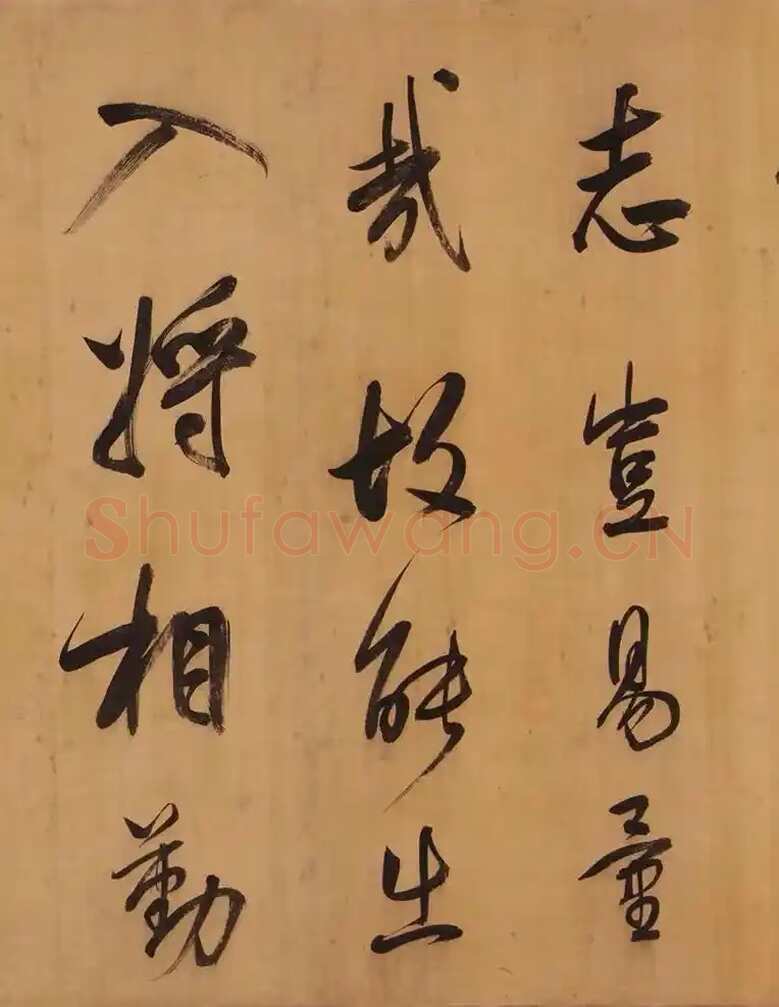 志豈易量
哉故能出
入將相勤
Shufawang.CN